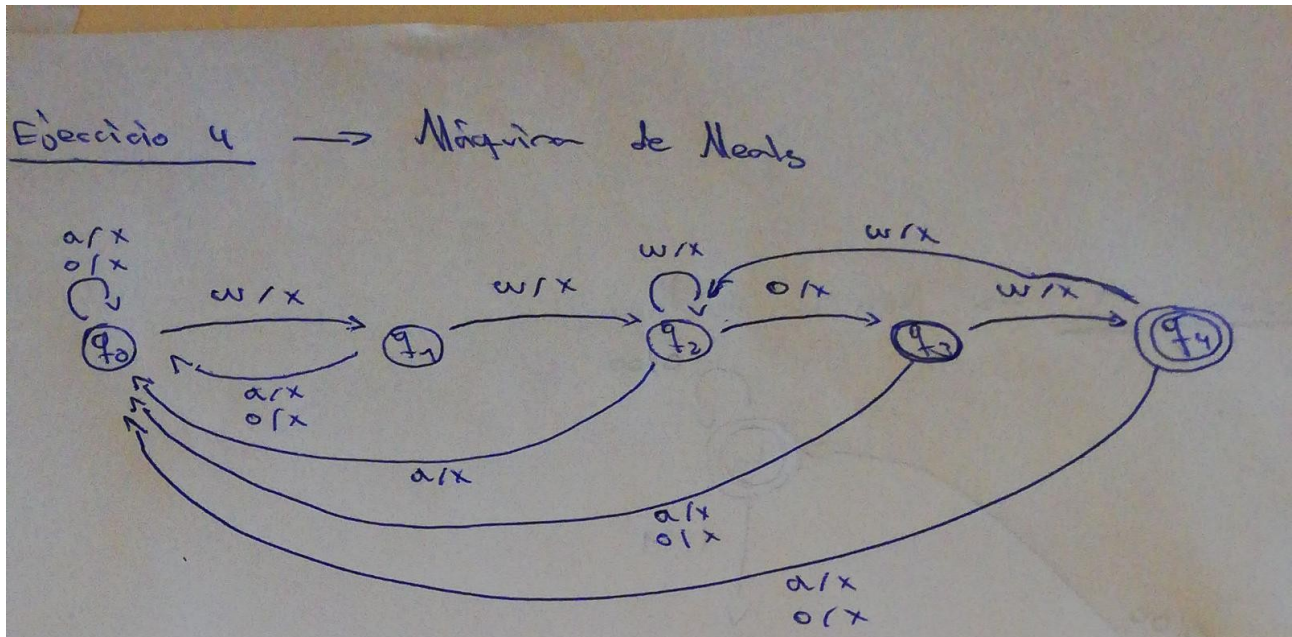 Ejercicio 4 → Máquina de Mealy
a/x
o/x
w/x
w/x
w/x
o/x
w/x
w/x
q0
q1
q2
q3
q4
a/x
o/x
a/x
a/x
o/x
a/x
o/x